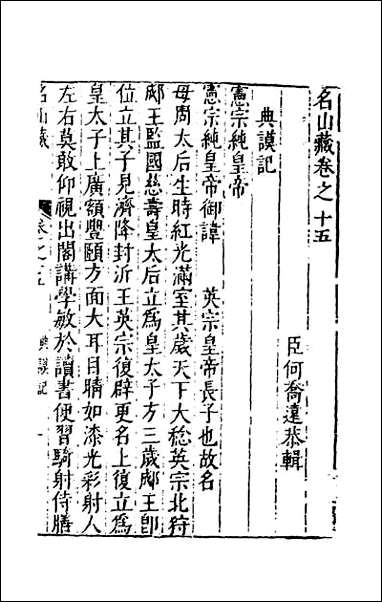 名山藏卷之十五
臣何喬遠恭輯
典謨記
憲宗純皇帝
憲宗純皇帝御諱　英宗皇帝長子也故名
母周太后生時紅光滿室其歲天下大稔英宗北狩
郕王監國慈壽皇太后立為皇太子方三歲郕王卽
位立其子見濟降封沂王英宗復辟更名上復立為
皇太子上廣額豐頤方面大耳目睛如漆光彩射人
左右莫敢仰視出閣講學敏於讀書便習騎射侍膳
名山藏　卷之十五　典謨記　一